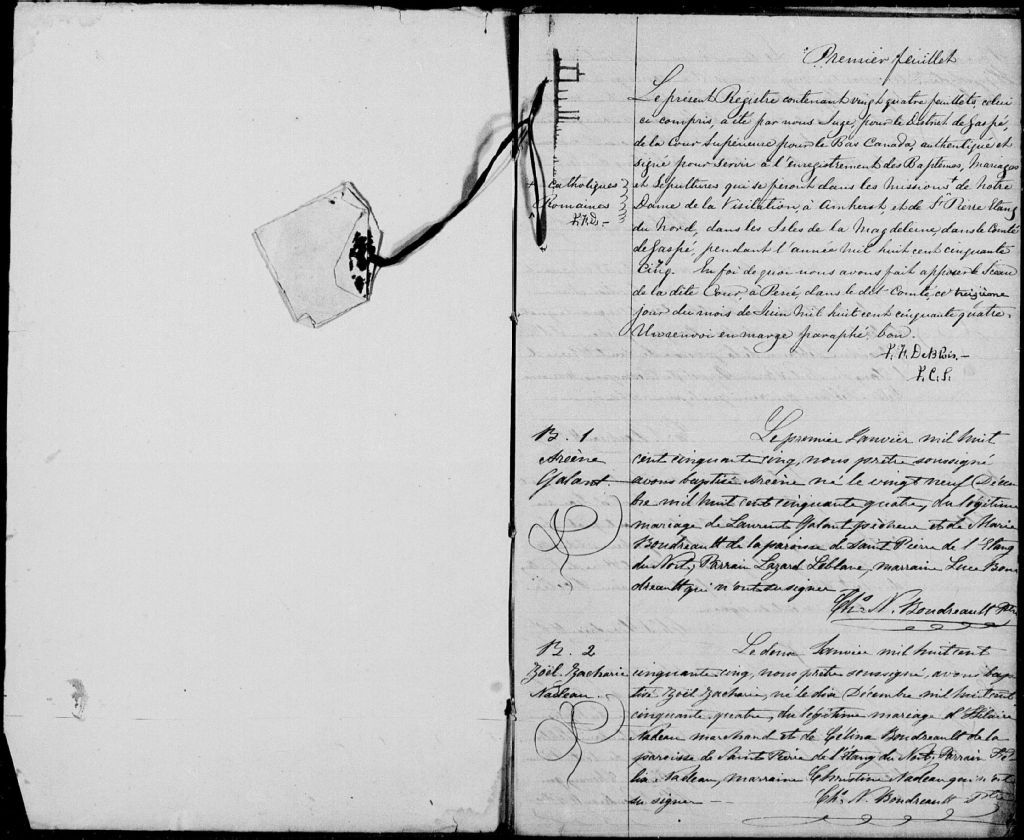 Premier feuillet
Le présent Régistre contenant vingt quatre feuillets, celui
ci compris, a été par nous Juge, pour le District de Gaspé,
de la Cour Supérieure pour le Bas Canada, authentiqué et
signé pour servir à l'enregistrement des Baptêmes, Mariages
et Sépultures qui se feront dans les missions + de Notre
Dame de la Visitation, à Amherst, et de St Pierre Etang
du Nord, dans les Isles de la Magdeleine, dans le Comté
de Gaspé, pendant l'année mil huit cent cinquante
Cinq. En foi de quoi nous avons fait apposer le Sceau
de la dite Cour, à Percé, dans le dit Comté, ce treizième
jour du mois de Juin mil huit cent cinquante quatre.
Un renvoi en marge paraphé bon.
+ catholiques
Romaines
J. F. DeBlois.
J. C. S.
B. 1
Arsène
Galant
Le premier Janvier mil huit
cent cinquante cinq, nous prêtre soussigné
avons baptisé Arsène né le vingt neuf Décem
bre mil huit cent cinquante quatre, du légitime
mariage de Laurent Galant pêcheur et de Marie
Boudreault de la paroisse de Saint Pierre de l'Etang
du Nort; Parrain Lazard Leblanc, marraine Luce Bou
dreault qui n'ont su signer
Chs N. Boudreault Ptre
B. 2
Zoël Zacharie
Nadeau
Le deux Janvier mil huit cent
cinquante cinq, nous prêtre soussigné, avons bap
tisé Zoël Zacharie, né le dix Décembre mil huit cent
cinquante quatre, du légitime mariage d'Hilaire
Nadeau marchand et de Célina Boudreault de la
paroisse de Saint Pierre de l'étang du Nort; Parrain
Nadeau, marraine Christine Nadeau qui n'ont
su signer
Chs N. Boudreault Ptre